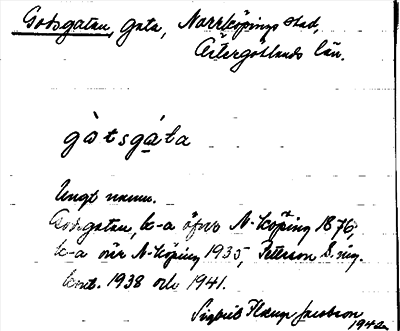 Godsgatan, gata, Norrköpings stad,
Östergötlands län.
gàtsgáta
Ungt namn.
Godsgatan, k-a över N-köping 1876;
k-a över N-köping 1935, Peterson
kart. 1938 och 1941.
Sigbrit Plænge Jacobson
1942